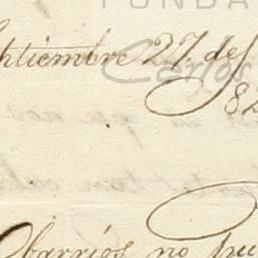 FUNDA
ptiembre 27. de
Carlos
82
barrios no pu